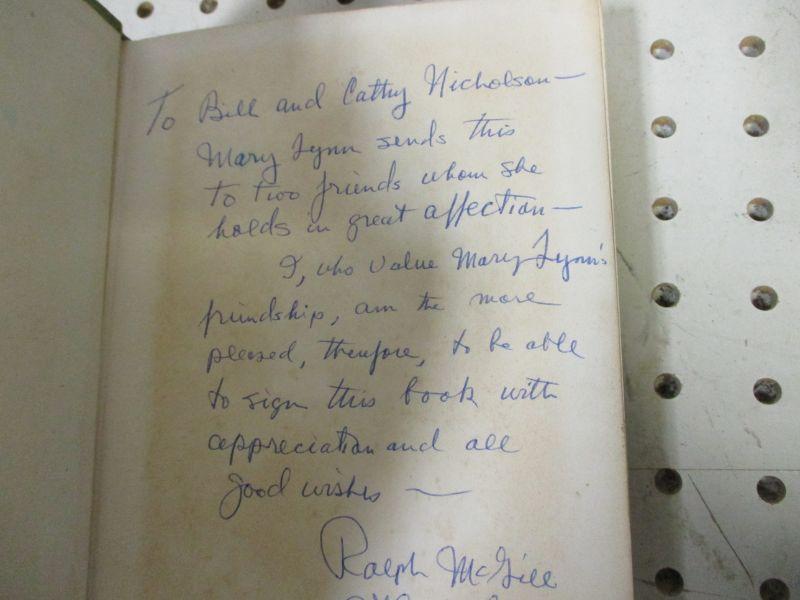 To Bill and Cathy Nicholson—
Mary Lynn sends this
to two friends whom she
holds in great affection—
I, who value Mary Lynn's
friendship, am the more
pleased, therefore, to be able
to sign this book with
appreciation and all
good wishes —
Ralph McGill